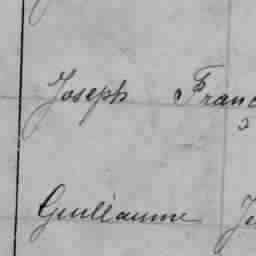 Joseph Franc
Guillaume Je